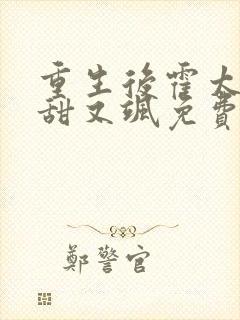 重生後霍太
甜又颯免費
鄭警官